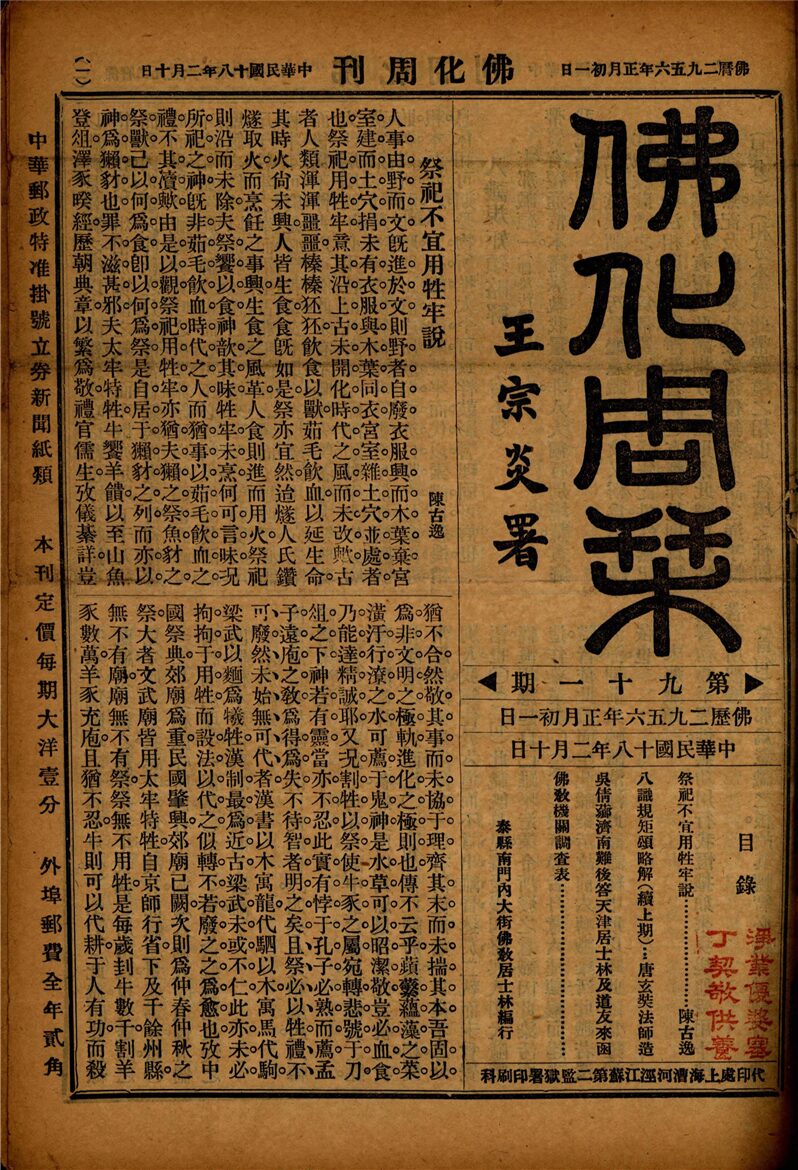 佛曆二九五六年正月初一日
佛化周刊
中華民國十八年二月十日
(一)
佛化周栞
王宗炎署
▶第九十一期◀
佛歷二九五六年正月初一日
中華民國十八年二月十日
目錄
祭祀不宜用牲牢說………………陳古逸
八識規矩頌略解(續上期)…唐玄奘法師造
吳倩薌濟南難後答天津居士林及道友來函
佛敎機關調查表………………………
泰縣南門內大街佛敎居士林編行
淨業優婆塞
丁契敬供養
代印處上海漕河涇江蘇第二監獄署印刷科
祭祀不宜用牲牢說
陳古逸
人事由野而文旣進於文則野者自廢。衣服興而木葉棄。宮
室建而土穴捐。未有衣服與木葉同衣。宮室雜土穴並處者
也。祭祀用牲牢。意其沿上古未開化時代之風而未改歟。古
者人類渾渾噩噩。榛榛狉狉。飲食以獸。茹毛飲血。以延生命。
其時火尙未興。人皆生食。食旣如是。祭亦宜然。迨燧人氏鑽
燧取火。而烹飪之事興。生食之風革。人食則進而用火。祭祀
則沿而未除。夫祭饗以食。神歆其味。牲牢未烹。何可言味。况
所祀之神。旣非茹毛飲血時代之人。而猶事以茹毛飲血之
禮。不其瀆歟。由是以觀。祭祀用牲牢。亦猶夫獺之祭魚。豺之
祭獸。己以何爲食。卽以何爲祭。是自居于獺豺之列。而亦以
神爲獺豺也。罪不滋甚邪。夫太牢特牲。牛饗羊饋。以至山魚
登俎。澤豕睽經。歷朝典章。以繁爲敬。禮官儒生。攷儀綦詳。豈
猶不合。然敬其事而未協于理。齊其末而未揣其本。吾固以
爲非文明之極軌。進化之極則也。傳不云乎。蘋蘩薀藻之菜。
潢汙行潦之水。可薦于鬼神。是水草可以昭潔敬。豈必血食
乃能達精誠耶。又况割牲以祭。使牛豕之屬。宛轉悲號于刀
俎之下。神若有靈。當亦不忍。此實有悖于孔子必熟而薦。孟
子遠庖之敎。爲得爲失。不待智者明之矣。且祭必以牲。禮不
可廢。然未始無可代者。漢書以木寓龍代駟。以木寓馬代駒
梁武以麵爲犧牲。漢制最爲近古。梁武未或不仁。此亦未必
拘拘于用牲。而設法以代之。似轉不若廢之之爲愈也。攷中
國祭典。郊廟爲重。民國肇興。郊廟已闕。次則爲仲春仲秋之
祭。大者文武廟。皆用太牢特牲。自京師行省。下及千餘州縣。
無不有廟。廟無不有祭。祭無不用牲。是每歲刲牛數千。割羊
豕數萬。羊豕充庖。且猶不忍。牛則可以代耕。于人有功。而殺
中華郵政特准掛號立券新聞紙類
本刊定價每期大洋壹分
外埠郵費全年貳角